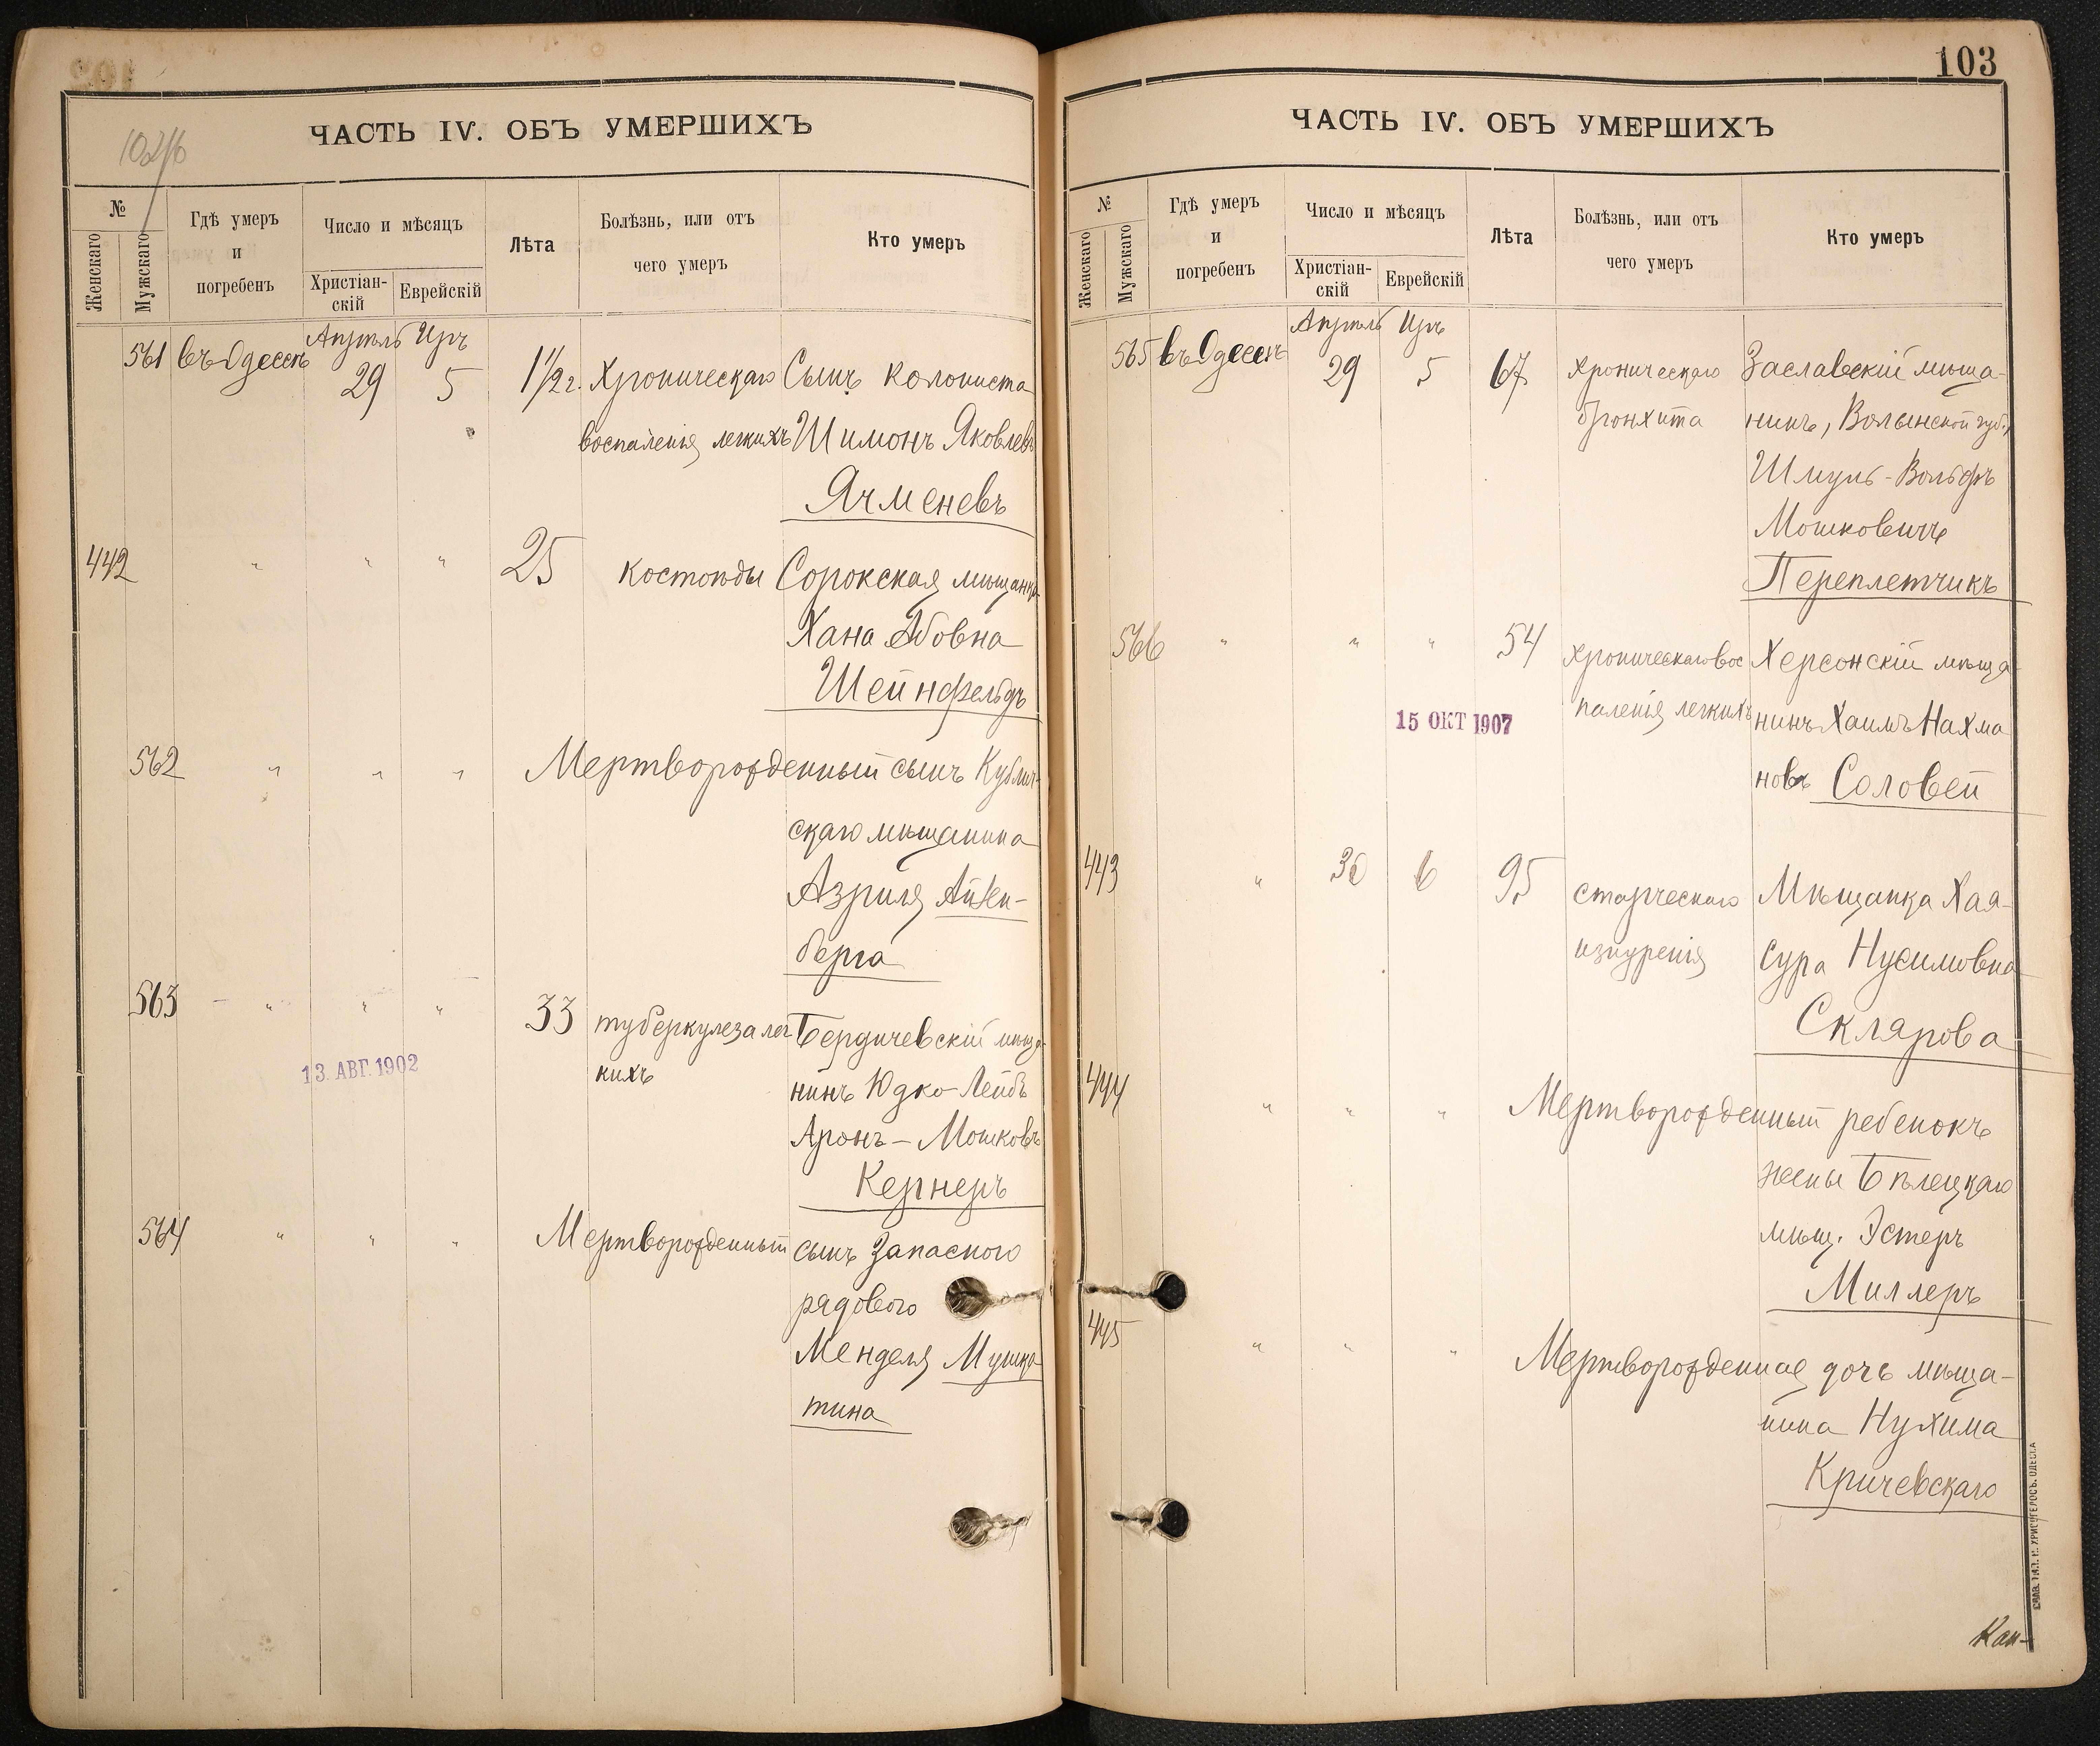 102/б
ЧАСТЬ IV. ОБЪ УМЕРШИХЪ
№
Женскаго
Мужскаго
Гдѣ умеръ
и
погребенъ
Число и мѣсяцъ
Христіан-
скій
Еврейскій
Лѣта
Болѣзнь, или отъ
чего умеръ
Кто умеръ
Апрѣль Иръ
561 въ Одессѣ 29 5 1 1/2 г. хроническаго Сынъ колониста
воспаленія легкихъ Шимонъ Яковлевъ
Ячменевъ
442 " " " 25 костоѣды Сорокская мѣщанка
Хана Абовна
Шейнфельдъ
562 " " " Мертворожденный сынъ Кублич-
скаго мѣщанина
Азриля Айзен-
берга
563 " " " 33 туберкулеза лег- Бердичевскій мѣща-
кихъ нинъ Юдко-Лейбъ
13. АВГ. 1902
Аронъ-Мошковъ
Кернеръ
564 " " " Мертворожденный сынъ Запаснаго
рядового
Менделя Мушка-
тина
103
ЧАСТЬ IV. ОБЪ УМЕРШИХЪ
№
Женскаго
Мужскаго
Гдѣ умеръ
и
погребенъ
Число и мѣсяцъ
Христіан-
скій
Еврейскій
Лѣта
Болѣзнь, или отъ
чего умеръ
Кто умеръ
Апрѣль Иръ
565 въ Одессѣ 29 5 67 хроническаго Заславскій мѣща-
бронхита нинъ, Волынской губ.,
Шмуль-Вольфъ
Мошковичъ
Переплетчикъ
566 " " " 54 хроническаго вос Херсонскій мѣща
паленія легкихъ нинъ Хаимъ Нахма
15 ОКТ 1907
новъ Соловей
443 " 30 6 95 старческаго Мѣщанка Хая-
изнуренія Сура Нусимовна
Склярова
444 " " " Мертворожденный ребенокъ
жены Бѣлецкаго
мѣщ. Эстеръ
Миллеръ
445 " " " Мертворожденная дочь мѣща-
нина Нухима
Кричевскаго
Кан-